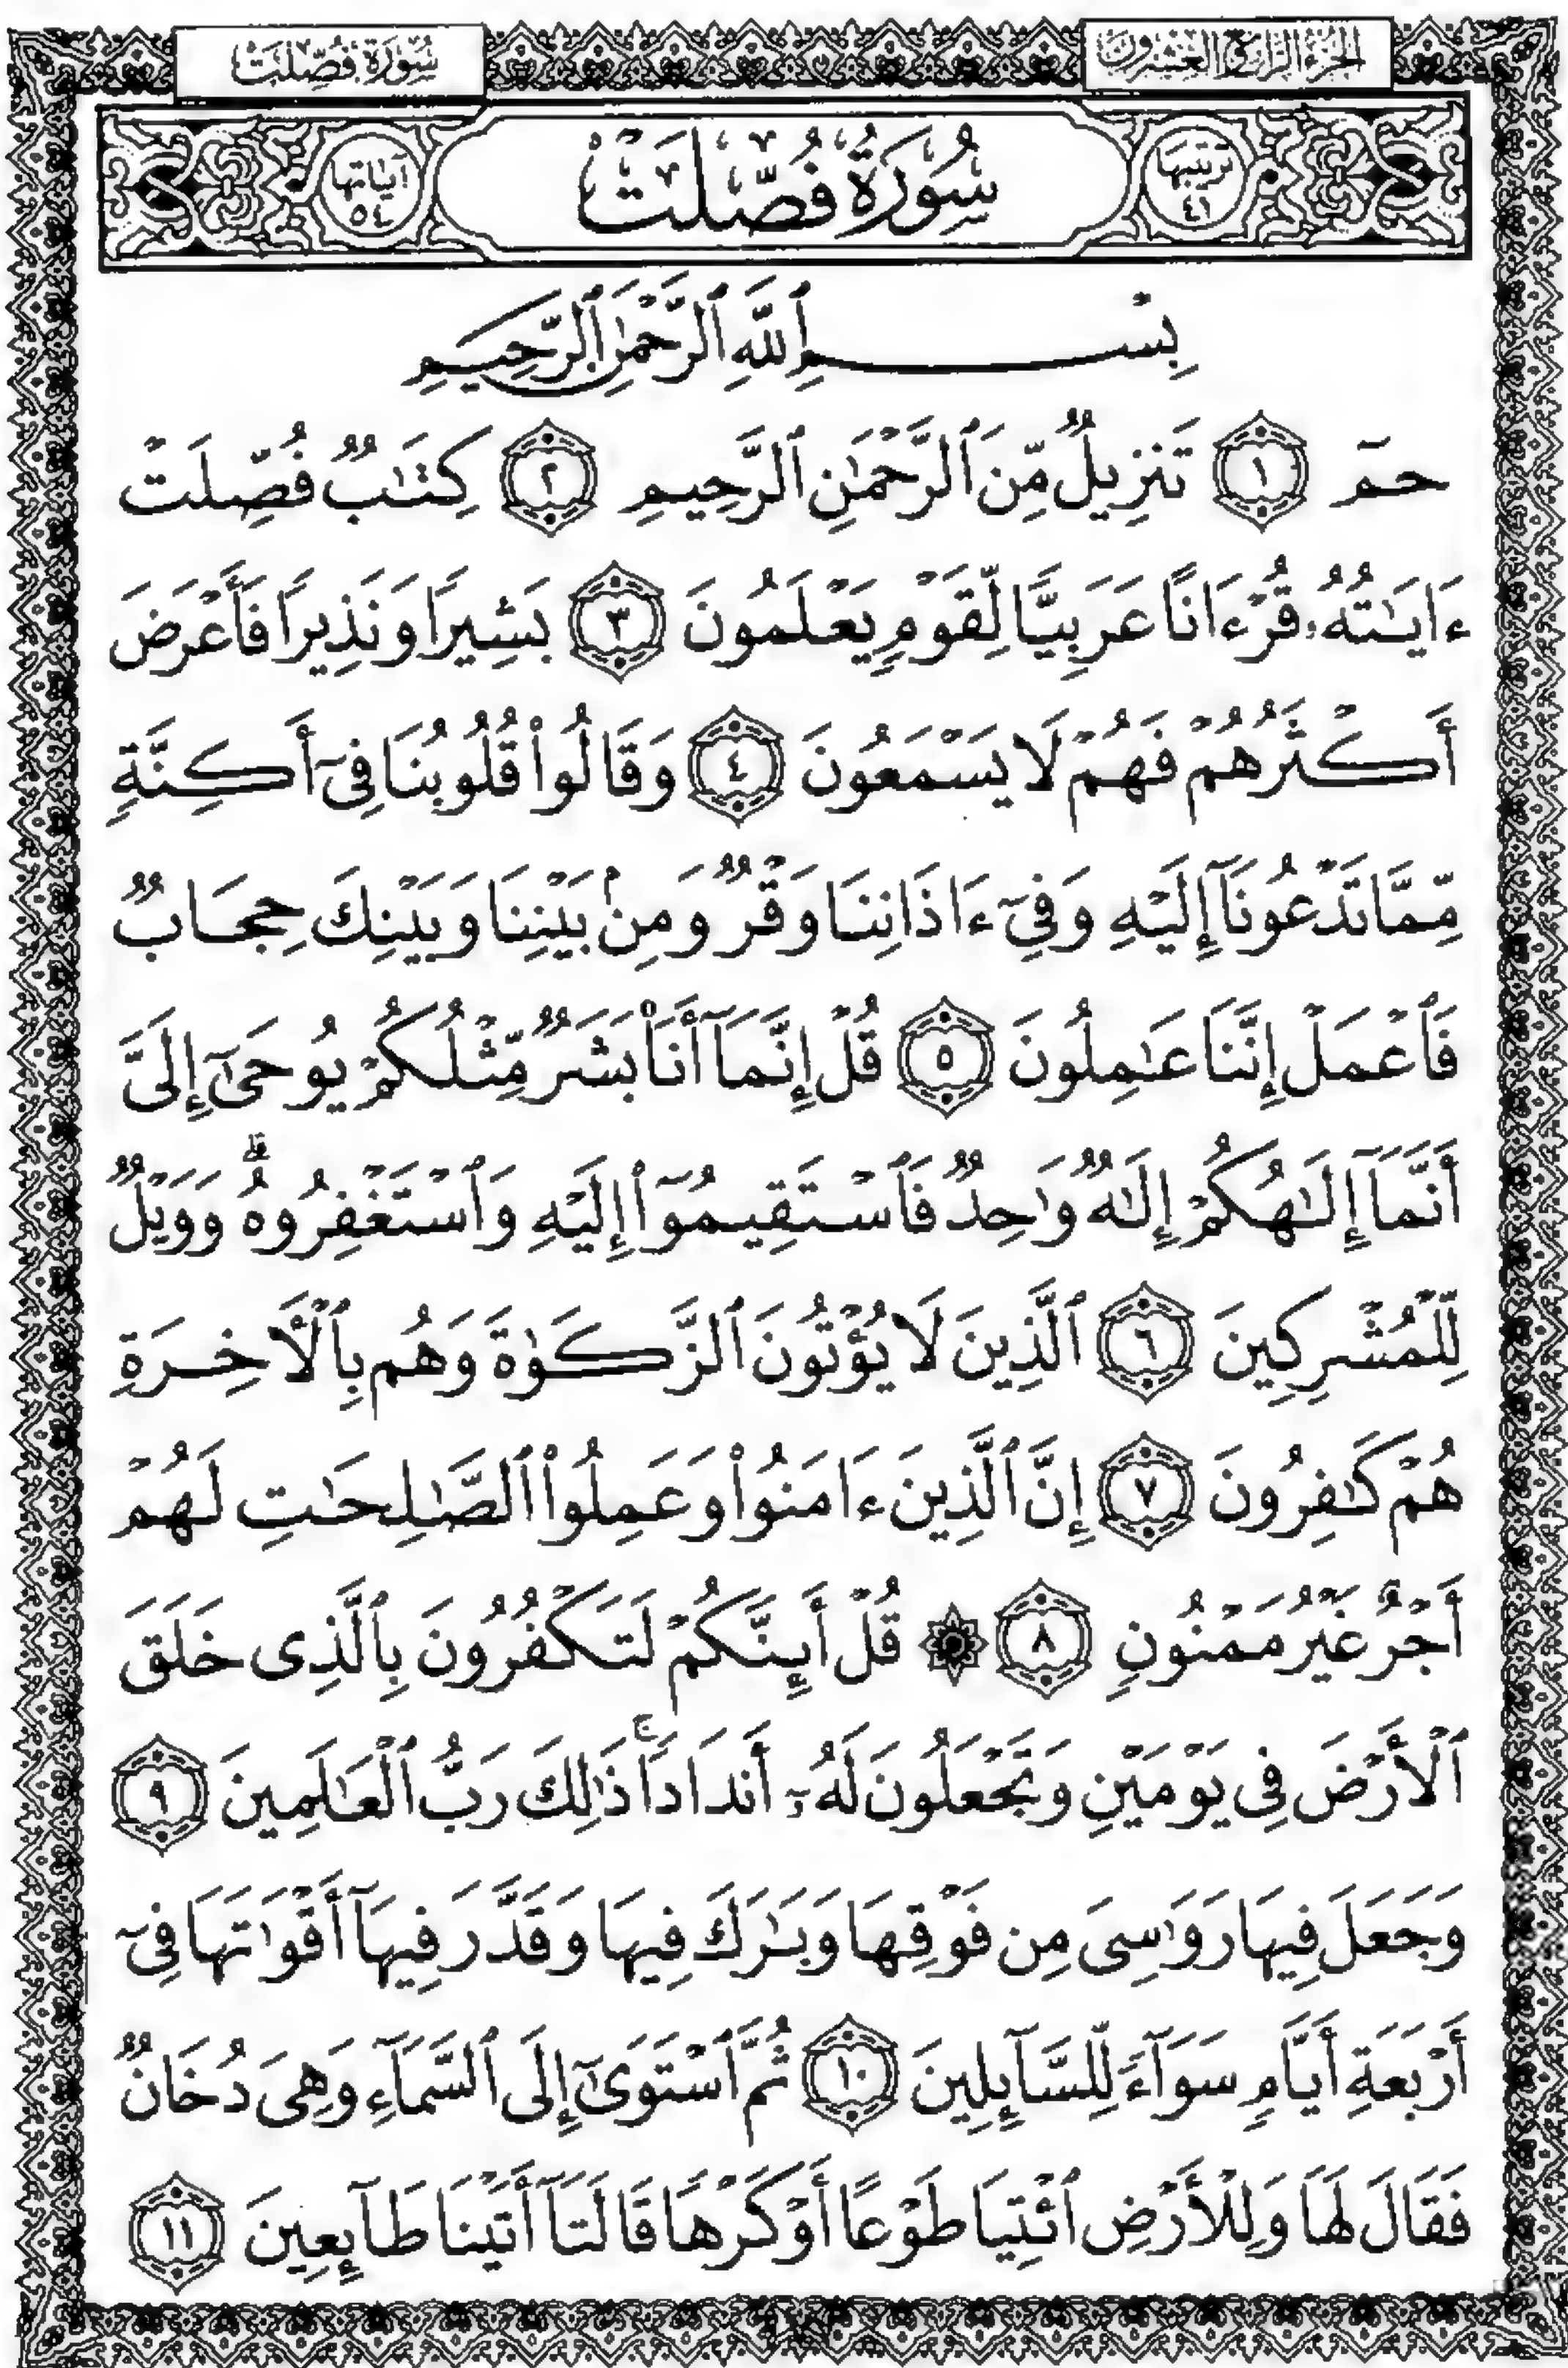 الجزء الرابع والعشرون
سورة فصلت
ترتيبها
٤١
سُورَةُ فُصِّلَتْ
آياتها
٥٤
بِسْمِ ٱللَّهِ ٱلرَّحْمَٰنِ ٱلرَّحِيمِ
حمٓ ١ تَنزِيلٌ مِّنَ ٱلرَّحْمَٰنِ ٱلرَّحِيمِ ٢ كِتَٰبٌ فُصِّلَتْ
ءَايَٰتُهُۥ قُرْءَانًا عَرَبِيًّا لِّقَوْمٍ يَعْلَمُونَ ٣ بَشِيرًا وَنَذِيرًا فَأَعْرَضَ
أَكْثَرُهُمْ فَهُمْ لَا يَسْمَعُونَ ٤ وَقَالُوا۟ قُلُوبُنَا فِىٓ أَكِنَّةٍ
مِّمَّا تَدْعُونَآ إِلَيْهِ وَفِىٓ ءَاذَانِنَا وَقْرٌ وَمِنۢ بَيْنِنَا وَبَيْنِكَ حِجَابٌ
فَٱعْمَلْ إِنَّنَا عَٰمِلُونَ ٥ قُلْ إِنَّمَآ أَنَا۠ بَشَرٌ مِّثْلُكُمْ يُوحَىٰٓ إِلَىَّ
أَنَّمَآ إِلَٰهُكُمْ إِلَٰهٌ وَٰحِدٌ فَٱسْتَقِيمُوٓا۟ إِلَيْهِ وَٱسْتَغْفِرُوهُ ۗ وَوَيْلٌ
لِّلْمُشْرِكِينَ ٦ ٱلَّذِينَ لَا يُؤْتُونَ ٱلزَّكَوٰةَ وَهُم بِٱلْأَخِرَةِ
هُمْ كَٰفِرُونَ ٧ إِنَّ ٱلَّذِينَ ءَامَنُوا۟ وَعَمِلُوا۟ ٱلصَّٰلِحَٰتِ لَهُمْ
أَجْرٌ غَيْرُ مَمْنُونٍ ٨ ۞ قُلْ أَئِنَّكُمْ لَتَكْفُرُونَ بِٱلَّذِى خَلَقَ
ٱلْأَرْضَ فِى يَوْمَيْنِ وَتَجْعَلُونَ لَهُۥٓ أَندَادًا ۚ ذَٰلِكَ رَبُّ ٱلْعَٰلَمِينَ ٩
وَجَعَلَ فِيهَا رَوَٰسِىَ مِن فَوْقِهَا وَبَٰرَكَ فِيهَا وَقَدَّرَ فِيهَآ أَقْوَٰتَهَا فِىٓ
أَرْبَعَةِ أَيَّامٍ سَوَآءً لِّلسَّآئِلِينَ ١٠ ثُمَّ ٱسْتَوَىٰٓ إِلَى ٱلسَّمَآءِ وَهِىَ دُخَانٌ
فَقَالَ لَهَا وَلِلْأَرْضِ ٱئْتِيَا طَوْعًا أَوْ كَرْهًا قَالَتَآ أَتَيْنَا طَآئِعِينَ ١١